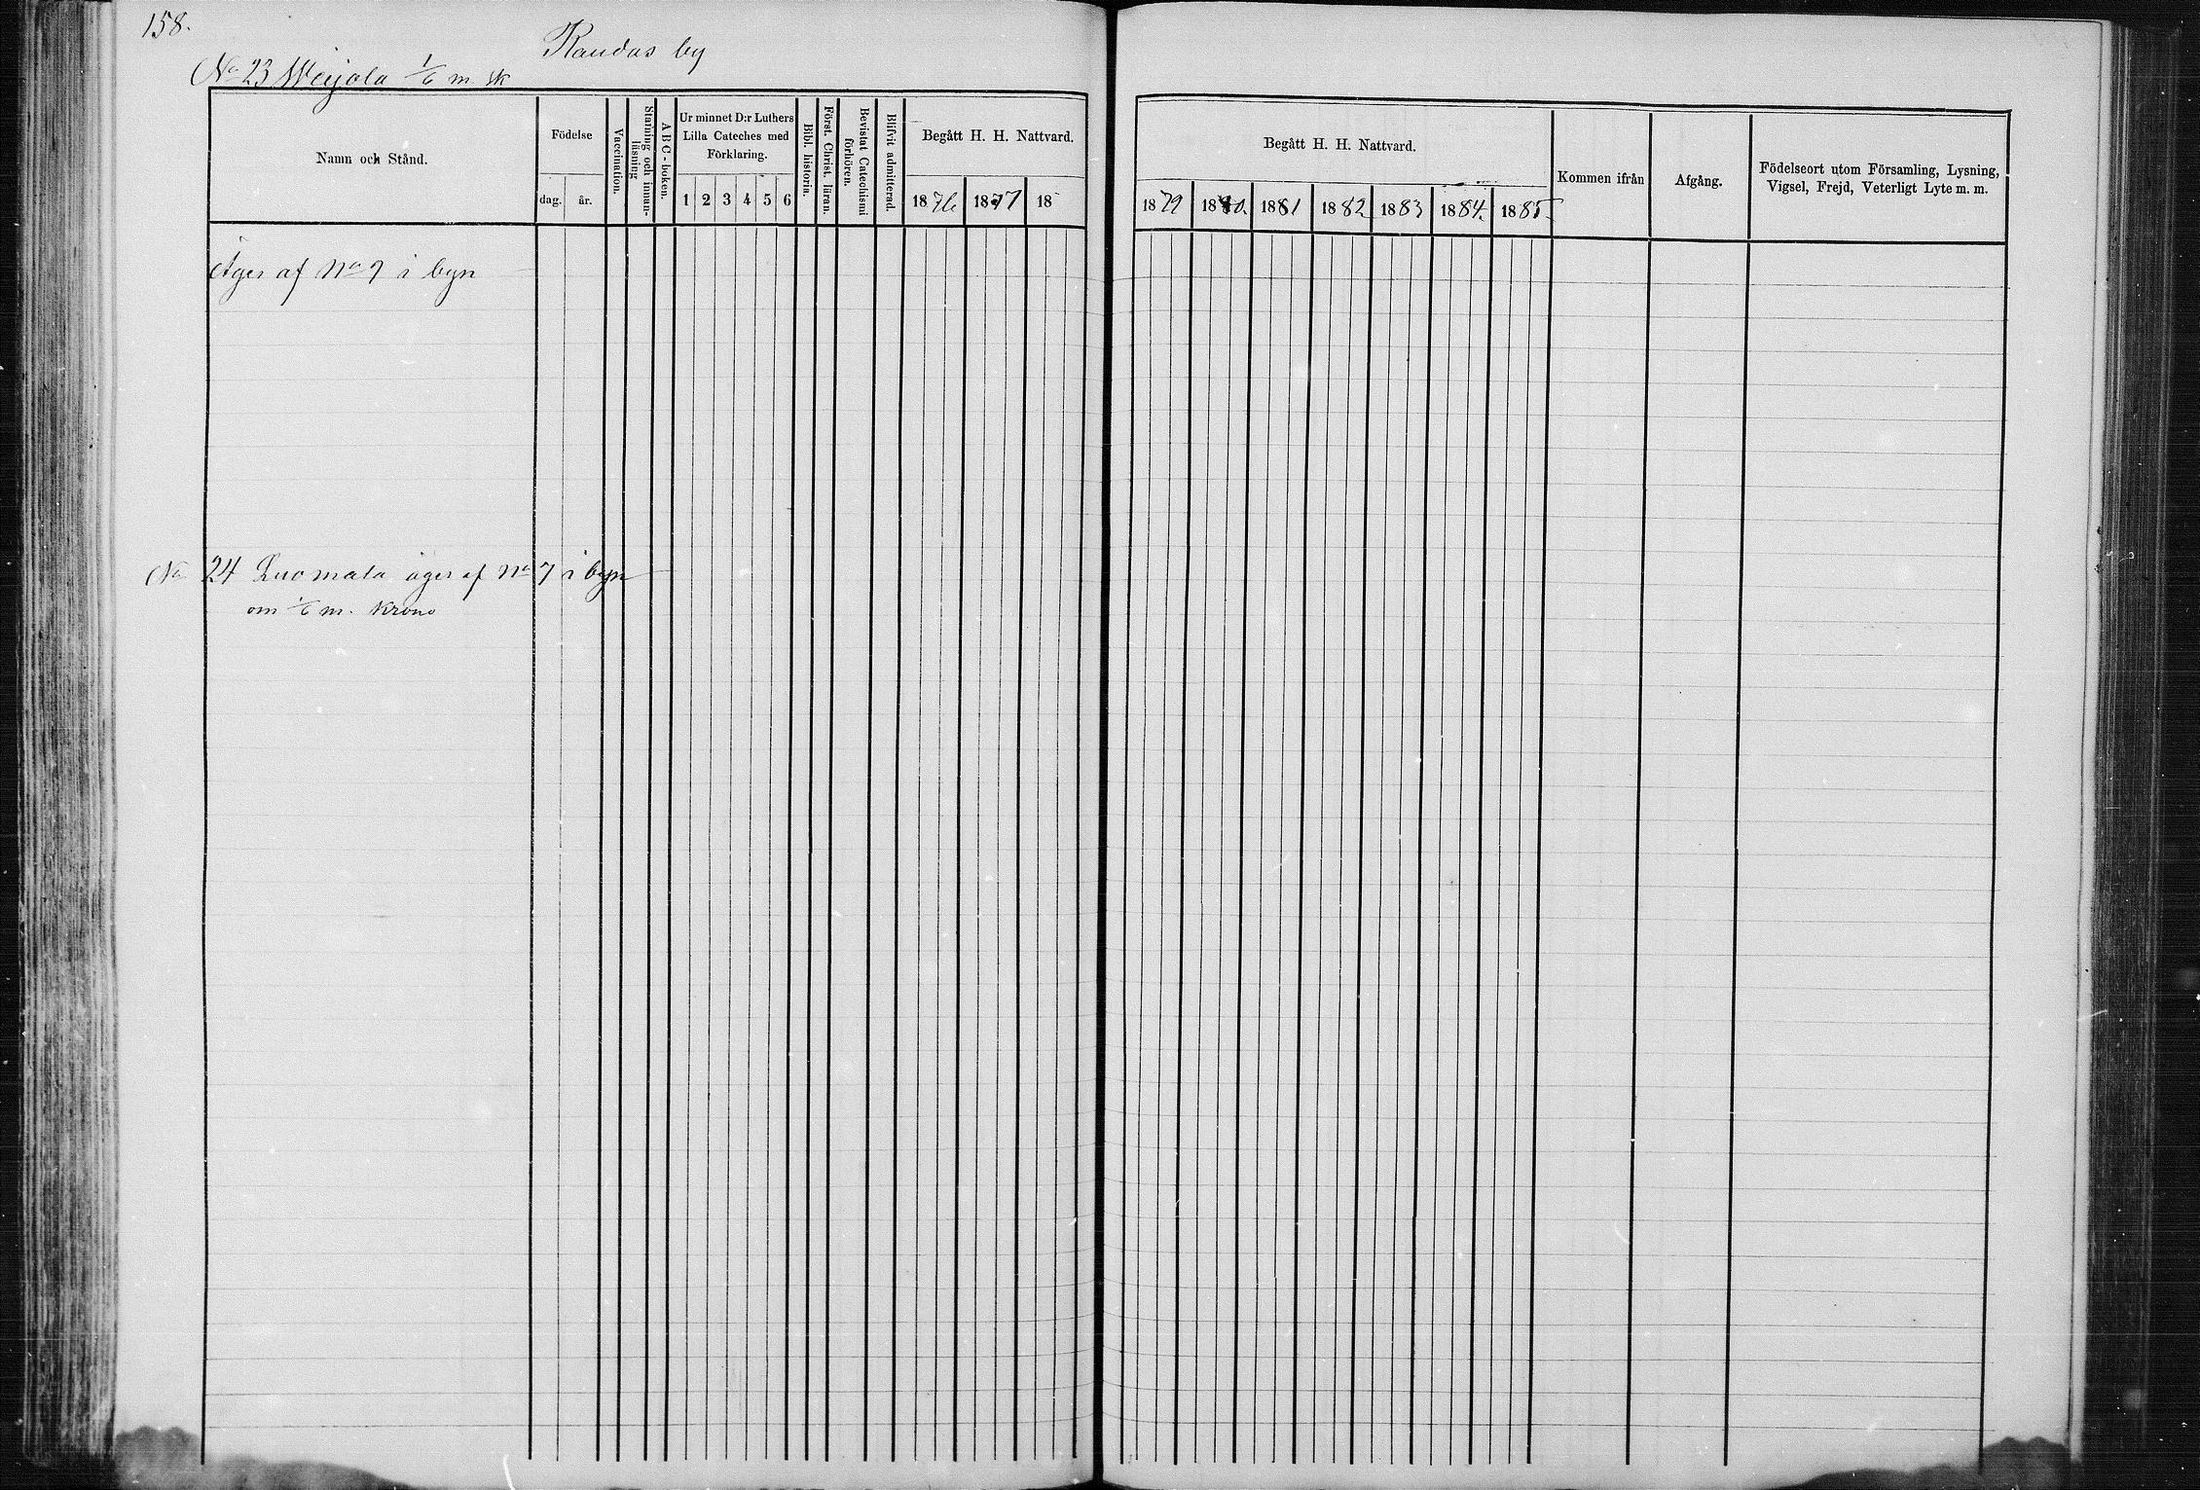 158.
Raudas by
No 23 Weijola 1/6 m sk
Namn och Stånd.
Födelse
dag. år.
Vaccination.
Stafning och innanläsning
ABC-boken.
Ur minnet D:r Luthers
Lilla Cateches med
Förklaring.
1 2 3 4 5 6
Bibl. historia.
Först. Christ. läran.
Bevistat Catechismi förhören.
Blifvit admitterad.
Begått H. H. Nattvard.
1876 1877 18
Begått H. H. Nattvard.
1879 1880. 1881 1882 1883 1884. 1885.
Kommen ifrån
Afgång.
Födelseort utom Församling, Lysning,
Vigsel, Frejd, Veterligt Lyte m. m.
Äges af No 7 i byn
No 24 Luomala äges af No 7 i byn
om 1/6 m. krono